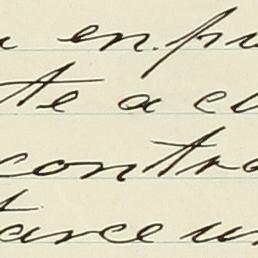 en pu
te a cl
contra
tarce un